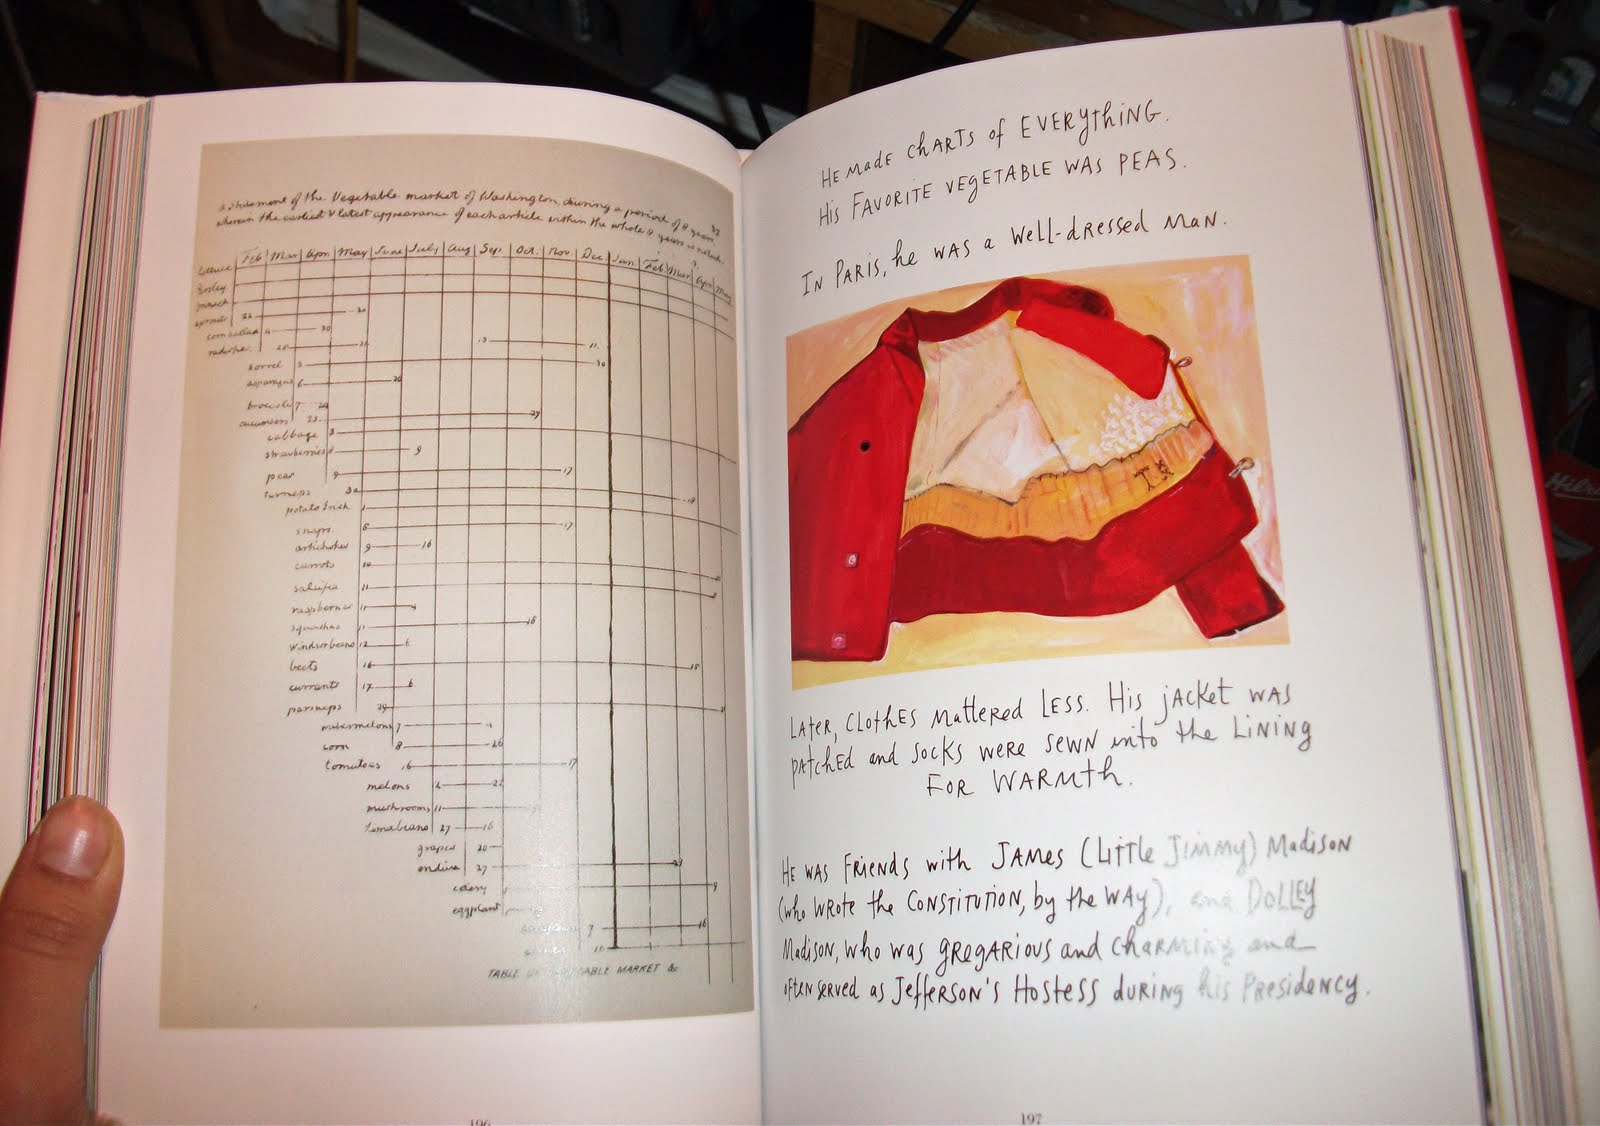 a statement of the Vegetable market of Washington, during a period of 8 years,
wherein the earliest & latest appearance of each article within the whole 8 years is noted.
Feb Mar Apr May June July Aug Sep. Oct. Nov. Dec. Jan Feb Mar Apr May
lettuce
parsley
sprouts 22 20
corn sallad 4 20
radishes
sorrel 30
asparagus 6
brocoli 7
cucumbers 29
cabbage
strawberries 8 9
peas 9 17
turneps 30 18
potatoes Irish 1
snaps. 6 17
artichokes 9 16
carrots 10
salsifia 11
raspberries 11
squashes 11 18
Windsor beans 12 6
beets 16 15
currants 17 6
parsneps 29
watermelons 7
corn 8 26
tomatoes 16 17
melons 22
mushrooms 11
Lima beans 27 16
grapes 20
endive 27
celery 9
eggplant
7 16
TABLE OF VEGETABLE MARKET &c
196
HE MADE CHARTS of EVERYTHING.
His FAVORITE VEGETABLE WAS PEAS.
IN PARIS, he WAS a Well-dressed MAN.
T J
LATER, CLOTHES MATTERED LESS. His JACKET WAS
PATCHED and SOCKS WERE SEWN into the LINING
FOR WARMTH.
HE WAS FRIENDS with JAMES (Little Jimmy) Madison
(who WROTE the CONSTITUTION, by the WAY), and DOLLEY
Madison, Who was GREGARIOUS and CHARMING and
OFTEN SERVED as JEFFERSON'S HOSTESS DURING his PRESIDENCY.
197